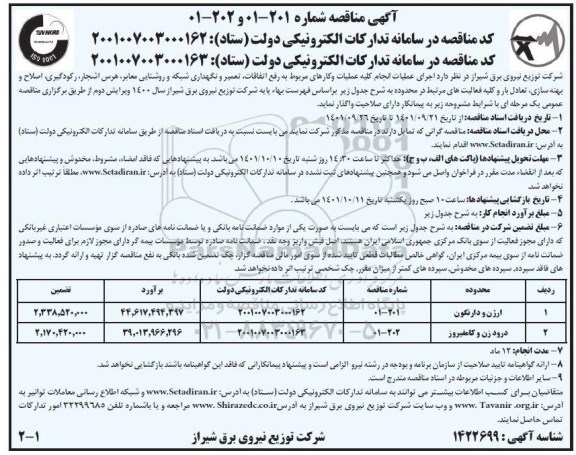 آگهی مناقصه شماره ۲۰۱-۰۱ و ۲۰۲-۰۱
کد مناقصه در سامانه تدارکات الکترونیکی دولت (ستاد): ۲۰۰۱۰۰۷۰۰۳۰۰۰۱۶۲
کد مناقصه در سامانه تدارکات الکترونیکی دولت (ستاد): ۲۰۰۱۰۰۷۰۰۳۰۰۰۱۶۳
TUV NORD
ISO 9001
شرکت توزیع نیروی برق شیراز در نظر دارد اجرای عملیات انجام کلیه عملیات وکارهای مربوط به رفع اتفاقات، تعمیر و نگهداری شبکه و روشنایی معابر، هرس اشجار، رکودگیری، اصلاح و
بهینه سازی، تعادل بار و کلیه فعالیت های مرتبط در محدوده به شرح جدول زیر براساس فهرست بهاء پایه شرکت توزیع نیروی برق شیراز سال ۱۴۰۰ ویرایش دوم از طریق برگزاری مناقصه
عمومی یک مرحله ای با شرایط مشروحه زیر به پیمانکار دارای صلاحیت واگذار نماید.
۱- تاریخ دریافت اسناد مناقصه: از تاریخ ۱۴۰۱/۰۹/۲۱ تا تاریخ ۱۴۰۱/۰۹/۲۶
۲- محل دریافت اسناد مناقصه: مناقصه گرانی که تمایل دارند در مناقصه مذکور شرکت نمایند می بایست نسبت به دریافت اسناد مناقصه از طریق سامانه تدارکات الکترونیکی دولت (ستاد)
به آدرس: www.Setadiran.ir اقدام نمایند.
۳- مهلت تحویل پیشنهادها (پاکت های الف، ب و ج): حداکثر تا ساعت ۱۴:۳۰ روز شنبه تاریخ ۱۴۰۱/۱۰/۱۰ می باشد. به پیشنهادهایی که فاقد امضاء، مشروط، مخدوش و پیشنهادهایی
که بعد از انقضاء مدت مقرر در فراخوان واصل می شود و همچنین پیشنهادهای ثبت نشده در سامانه تدارکات الکترونیکی دولت (ستاد) به آدرس: www.Setadiran.ir، مطلقا ترتیب اثر داده
نخواهد شد.
۴- تاریخ بازگشایی پیشنهادها: ساعت ۱۰ صبح روز یکشنبه تاریخ ۱۴۰۱/۱۰/۱۱ می باشد.
۵- مبلغ برآورد انجام کار: به شرح جدول زیر
۶- مبلغ تضمین شرکت در مناقصه: به شرح جدول زیر است که می بایست به صورت یکی از موارد ضمانت نامه بانکی و یا ضمانت نامه های صادره از سوی مؤسسات اعتباری غیربانکی
که دارای مجوز فعالیت از سوی بانک مرکزی جمهوری اسلامی ایران هستند، اصل فیش واریز وجه نقد، ضمانت نامه صادره توسط مؤسسات بیمه گر دارای مجوز لازم برای فعالیت و صدور
ضمانت نامه از سوی بیمه مرکزی ایران، گواهی خالص مطالبات قطعی تایید شده از سوی امور مالی مناقصه گزار، چک تضمین شده بانکی به نفع مناقصه گزار تهیه و ارائه گردد. به پیشنهاد
های فاقد سپرده، سپرده های مخدوش، سپرده های کمتر از میزان مقرر، چک شخصی ترتیب اثر داده نخواهد شد.
ردیف محدوده شماره مناقصه کد سامانه تدارکات الکترونیکی دولت برآورد تضمین
۱ ارژن و دارنگون ۲۰۱-۰۱ ۲۰۰۱۰۰۷۰۰۳۰۰۰۱۶۲ ۴۴,۶۱۷,۴۹۴,۳۹۷ ۲,۳۳۸,۵۲۰,۰۰۰
۲ درودزن و کامفیروز ۲۰۲-۰۱ ۲۰۰۱۰۰۷۰۰۳۰۰۰۱۶۳ ۳۹,۰۱۳,۹۶۶,۲۹۶ ۲,۱۷۰,۴۲۰,۰۰۰
۷- مدت انجام: ۱۲ ماه
۸- ارائه گواهینامه تایید صلاحیت از سازمان برنامه و بودجه در رشته نیرو الزامی است و پیشنهاد پیمانکارانی که فاقد این گواهینامه باشند بازگشایی نخواهد شد.
۹- سایر اطلاعات و جزئیات مربوطه در اسناد مناقصه مندرج است.
متقاضیان برای کسب اطلاعات بیشتر می توانند به سامانه تدارکات الکترونیکی دولت (ستاد) به آدرس: www.Setadiran.ir و شبکه اطلاع رسانی معاملات توانیر به
آدرس: www. Tavanir .org.ir و وب سایت شرکت توزیع نیروی برق شیراز به آدرس www. Shirazedc.co.ir مراجعه و یا باشماره تلفن ۳۲۲۹۹۶۸۵ امور تدارکات
تماس حاصل نمایند.
شناسه آگهی: ۱۴۲۲۶۹۹ شرکت توزیع نیروی برق شیراز ۲-۱